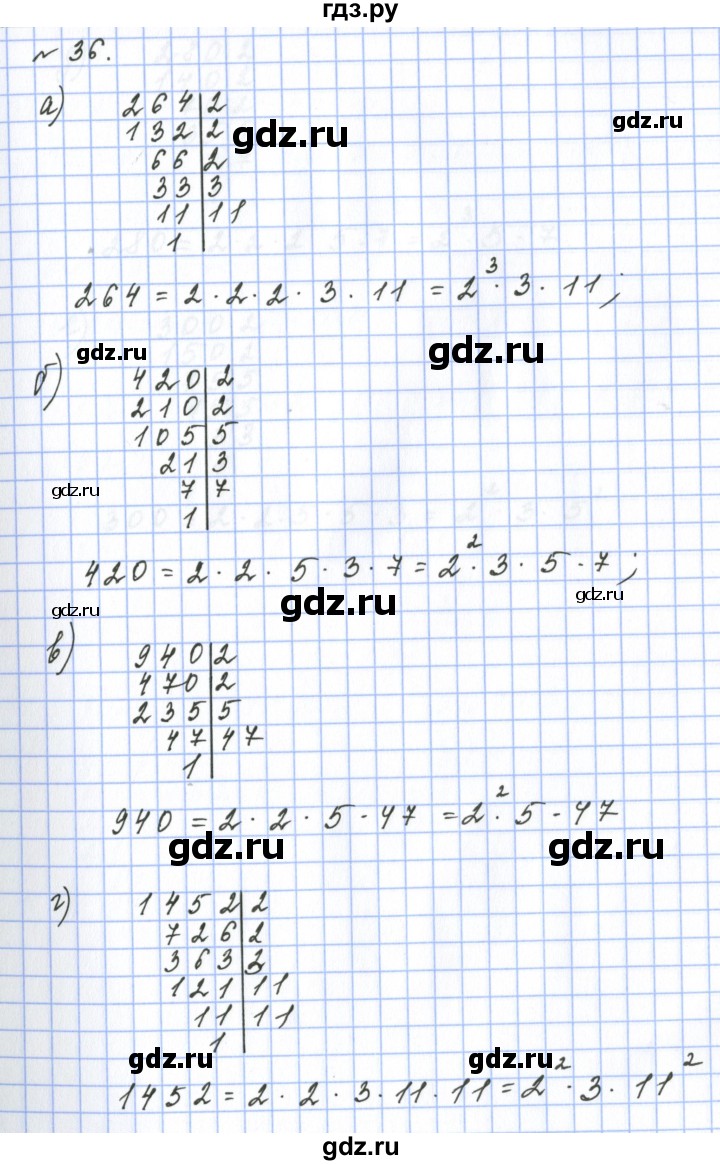 гдз.ру
№ 36.
а) 264|2
132|2
66|2
33|3
11|11
1|
gdz.ru
gdz.ru
264 = 2·2·2·3·11 = 2³·3·11;
gdz.ru
gdz.ru
б) 420|2
210|2
105|5
21|3
7|7
1|
gdz.ru
420 = 2·2·5·3·7 = 2²·3·5·7;
gdz.ru
gdz.ru
gdz.ru
в) 940|2
470|2
235|5
47|47
1|
940 = 2·2·5·47 = 2²·5·47
gdz.ru
gdz.ru
г) 1452|2
726|2
363|3
121|11
11|11
1|
gdz.ru
gdz.ru
1452 = 2·2·3·11·11 = 2²·3·11²
gdz.ru